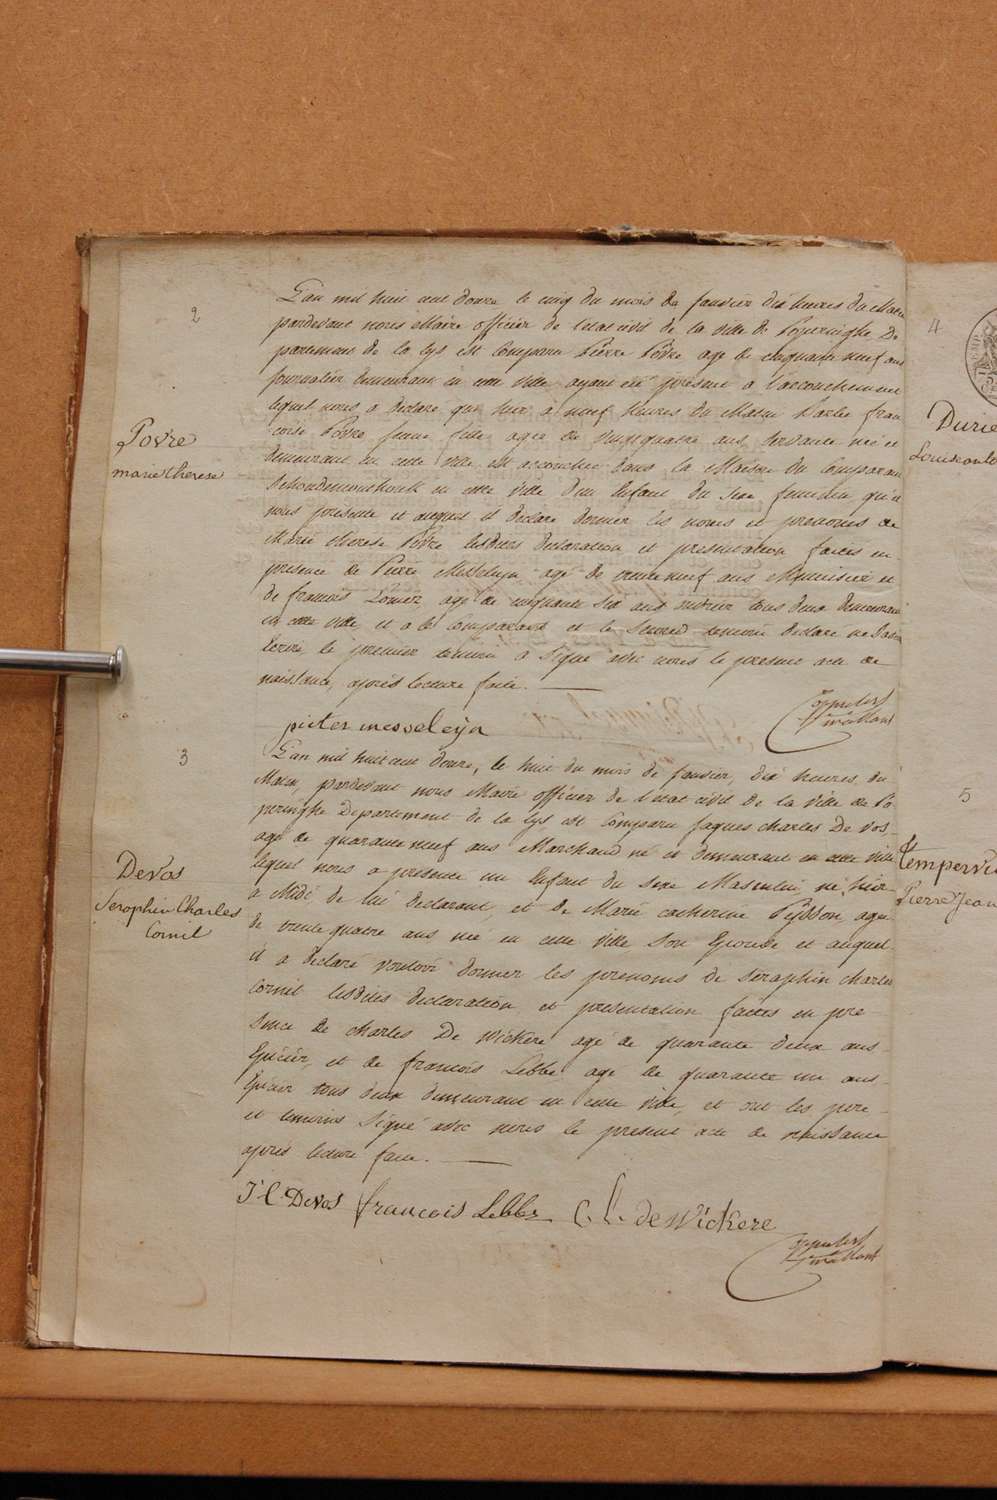 2
L'an mil huit cent douze le cinq du mois de Janvier dix heures du Matin
pardevant nous Maire officier de l'etat civil de la ville de Poperinghe De
partement de la Lys est comparu Pierre Povre agé de cinquante neuf ans
Journalier demeurant en cette ville ayant été present a l'accouchement
lequel nous a declaré que hier à neuf heures du Matin Barbe fran
coise Povre jeune fille agée de vingt quatre ans servante née et
Povre
marie therese
demeurant en cette ville est accouchée dans la Maison du Comparant
en cette ville d'un Enfant du sexe feminin qu'il
nous presente et auquel il declare donner les noms et prenoms de
Marie therese Povre lesdites declaration et presentation faites en
presence de Pierre Messeleyn agé de trente neuf ans Menuisier et
de francois agé de cinquante six ans tous deux demeurant
en cette ville et a le comparant et le second temoin declaré ne savoir
Ecrire, le premier temoin a signé avec nous le present acte de
naissance, après lecture faite.
pieter messeleyn
3
L'an mil huit cent douze, le huit du mois de Janvier, dix heures du
Matin, pardevant nous Maire officier de l'etat civil de la ville de Po
peringhe Departement de la Lys est Comparu Jaques charles De vos,
agé de quarante neuf ans Marchand né et demeurant en cette ville
Devos
Seraphin Charles
Cornil
lequel nous a presenté un Enfant du sexe Masculin, né hier
a Midi, de lui declarant et de Marie catherine agée
de trente quatre ans née en cette ville son Epouse et auquel
il a declaré vouloir donner les prenoms de seraphin charles
Cornil lesdites declaration et presentation faites en pre
sence de charles De wickere agé de quarante deux ans
Epicier, et de francois Lebbe agé de quarante un ans
Epicier tous deux demeurant en cette ville, et ont les pere
et temoins signé avec nous le present acte de naissance
après lecture faite.
J. C. Devos francois Lebbe C. L. de Wickere
4
Durie
5
Tempervi
Pierre Jean